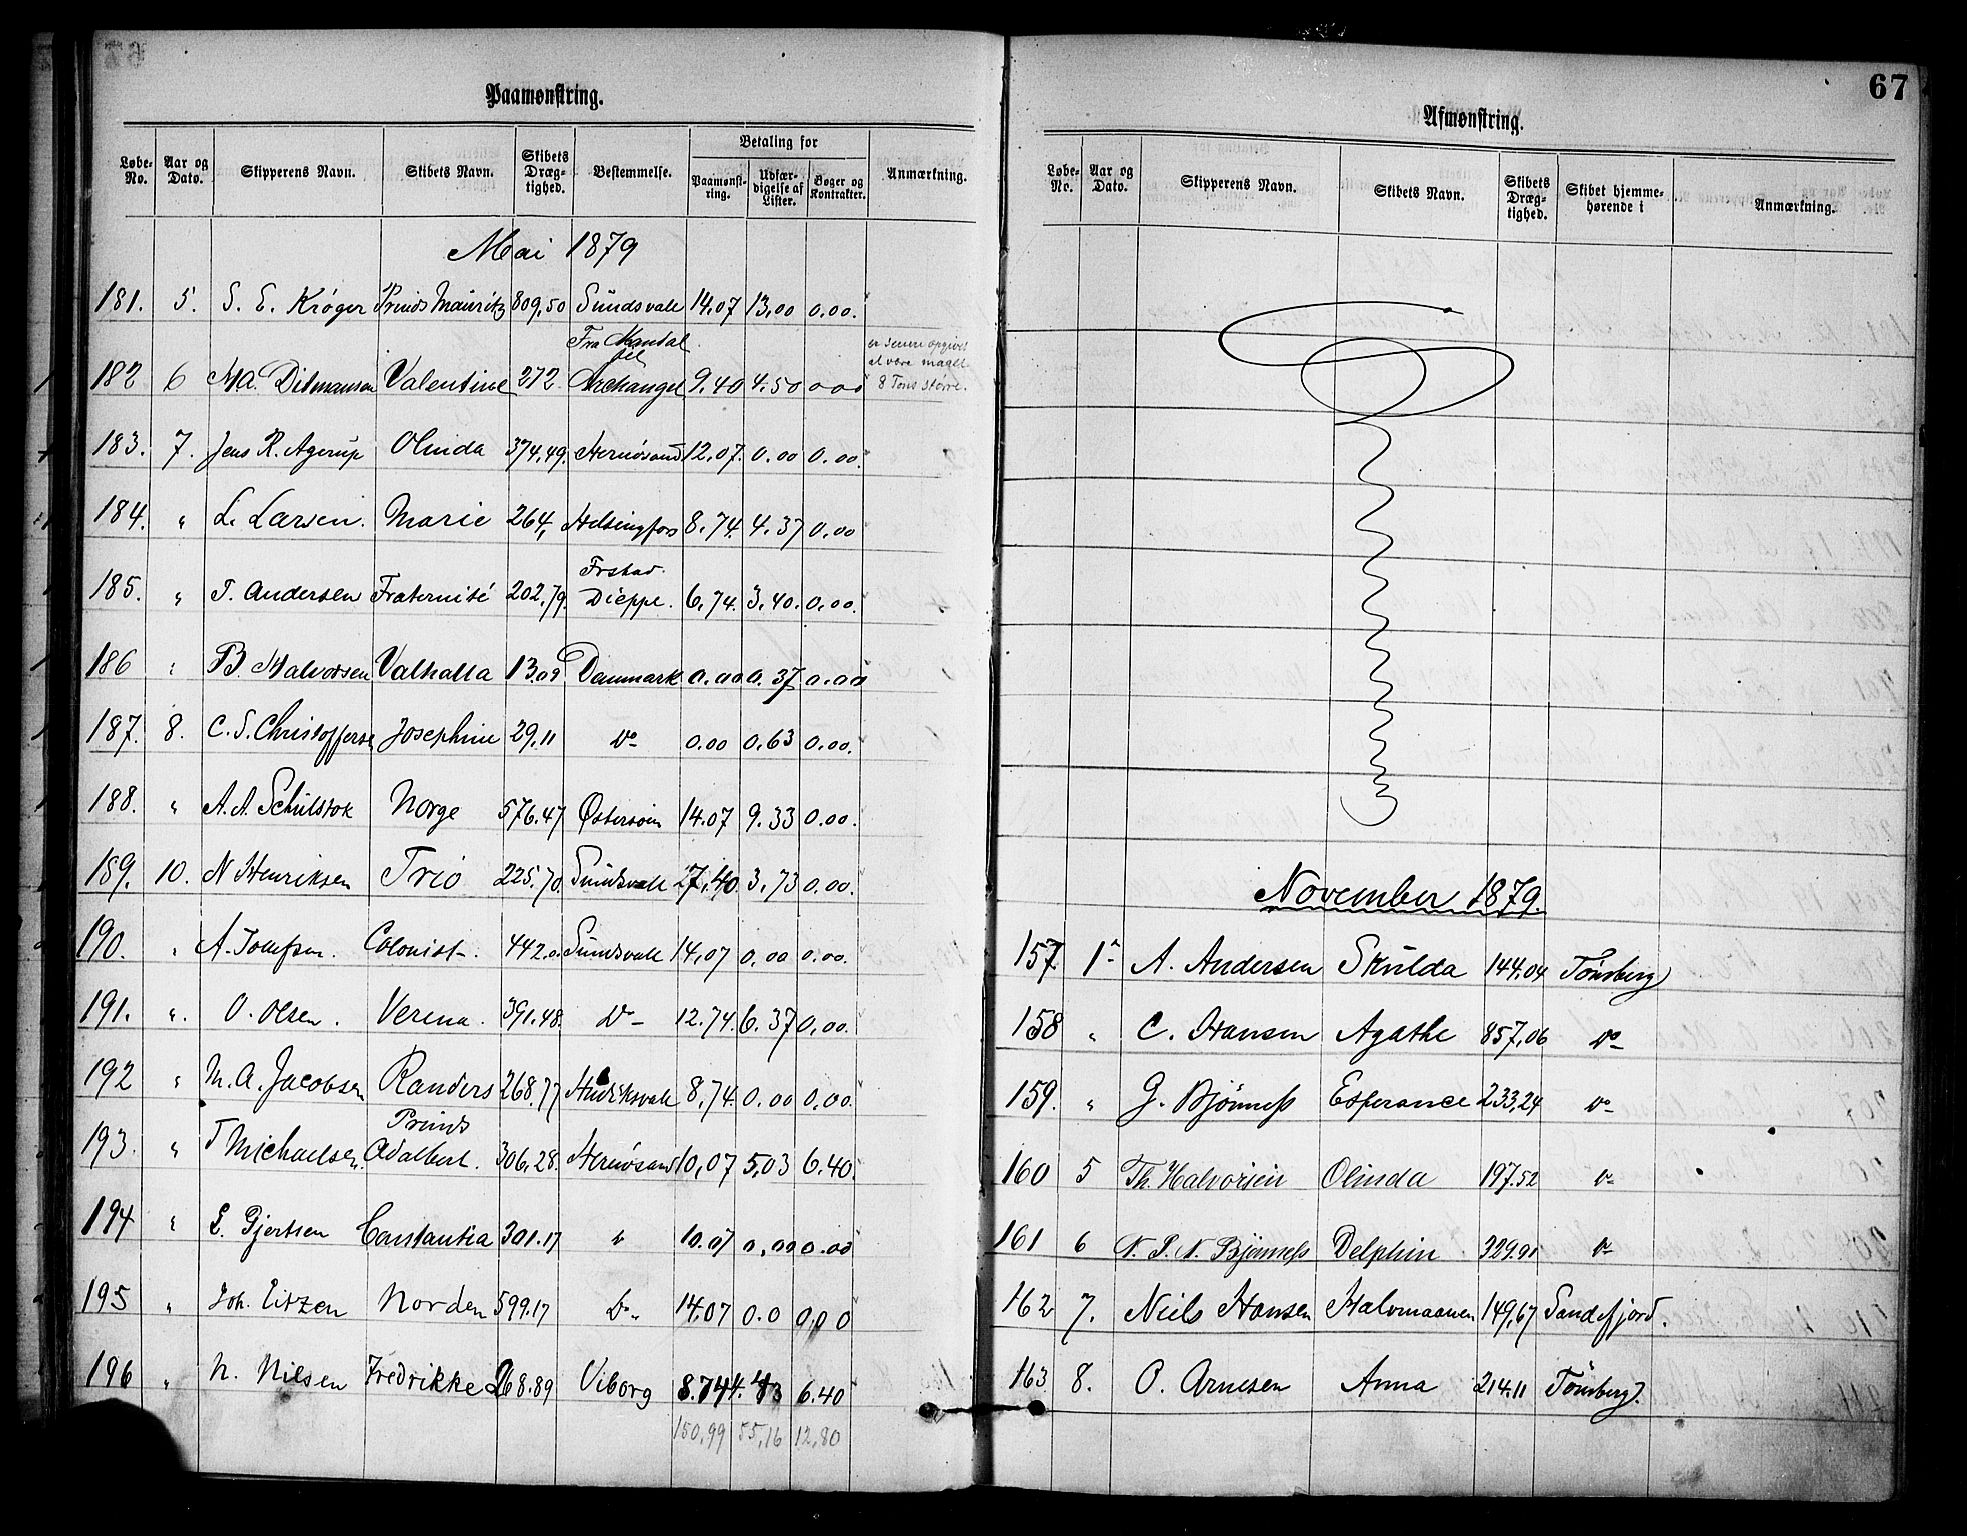 67
Paamønstring.
Løbe-No. Aar og Dato. Skipperens Navn. Skibets Navn. Skibets Dræg-tighed. Bestemmelse. Betaling for Paamønst-ring. Udfær-digelse af Lister. Bøger og Kontrakter. Anmærkning.
Mai 1879
181. 5. S. E. Krøger Prinds Mauritz 809,50 Sundsvall 14,07 13,00 0.00.
Fra Mandal til
182 6 Ma. Ditmansen Valentine 272. Archangel 9.40 4.50 000 er senere opgivet at være maalt 8 Tons større.
183. 7. Jens R. Agerup Olinda 374,49. Hernøsand 12,07. 0.00 0.00.
184. " L. Larsen. Marie 264, Helsingfors 8.74. 4.37 0.00
Frstad.
185. " T. Andersen Fraternité 202,79. Dieppe. 6,74. 3,40. 0,00.
186 " B. Halvorsen Valhalla 13.09 Danmark 0.00 0.37 0.00
187. 8. C. S. Christoffersen Josephine 29,11 Do 0.00 0,63 0.00.
188. " A. A. Schulstok Norge 576.47 Østersøen 14.07 9.33 0.00.
189. 10. N Henriksen Trio 225.70. Sundsvall 7,40 3,73 0.00.
190. " A. Josefsen. Colonist 442.0 Sundsvall 14,07 0,00 0.00.
191. ". O. Olsen. Verena. 391.48. Do 12.74. 6.37 0,00.
192 " M. A. Jacobsen Randers 268.77 Hudiksvall 8,74. 0.00 0,00.
Prinds
193. " T Michaelsen. Adalbert. 306,28. Hernøsand 10,07 5,03 6.40.
194 " E. Gjertsen Constantia 301.17 " 10.07 0,00 0.00
195 " Joh. Eitzen Norden 599.17 Do 14,07 0.0 0,00
196 " N. Nilsen Fredrikke 268.89 Viborg 8.74 4.43 6.40
150,99 55,16 12,80
67
Afmønstring.
Løbe-No. Aar og Dato. Skipperens Navn. Skibets Navn. Skibets Dræg-tighed. Skibet hjemme-hørende i Anmærkning.
November 1879.
157 1 A. Andersen Skulda 144.04 Tønsberg
158 " C. Hansen Agathe 857,06 Do
159. " G. Bjønness Esperance 233,24 Do
160 5 Th. Halvorsen Olinda 197.52 Do
161 6 N. P. N. Bjønness Delphin 329.91 Do
162 7. Niels Hansen Halvmaanen 149,67 Sandefjord.
163 8. O. Arnesen Anna 214.11 Tönsberg.